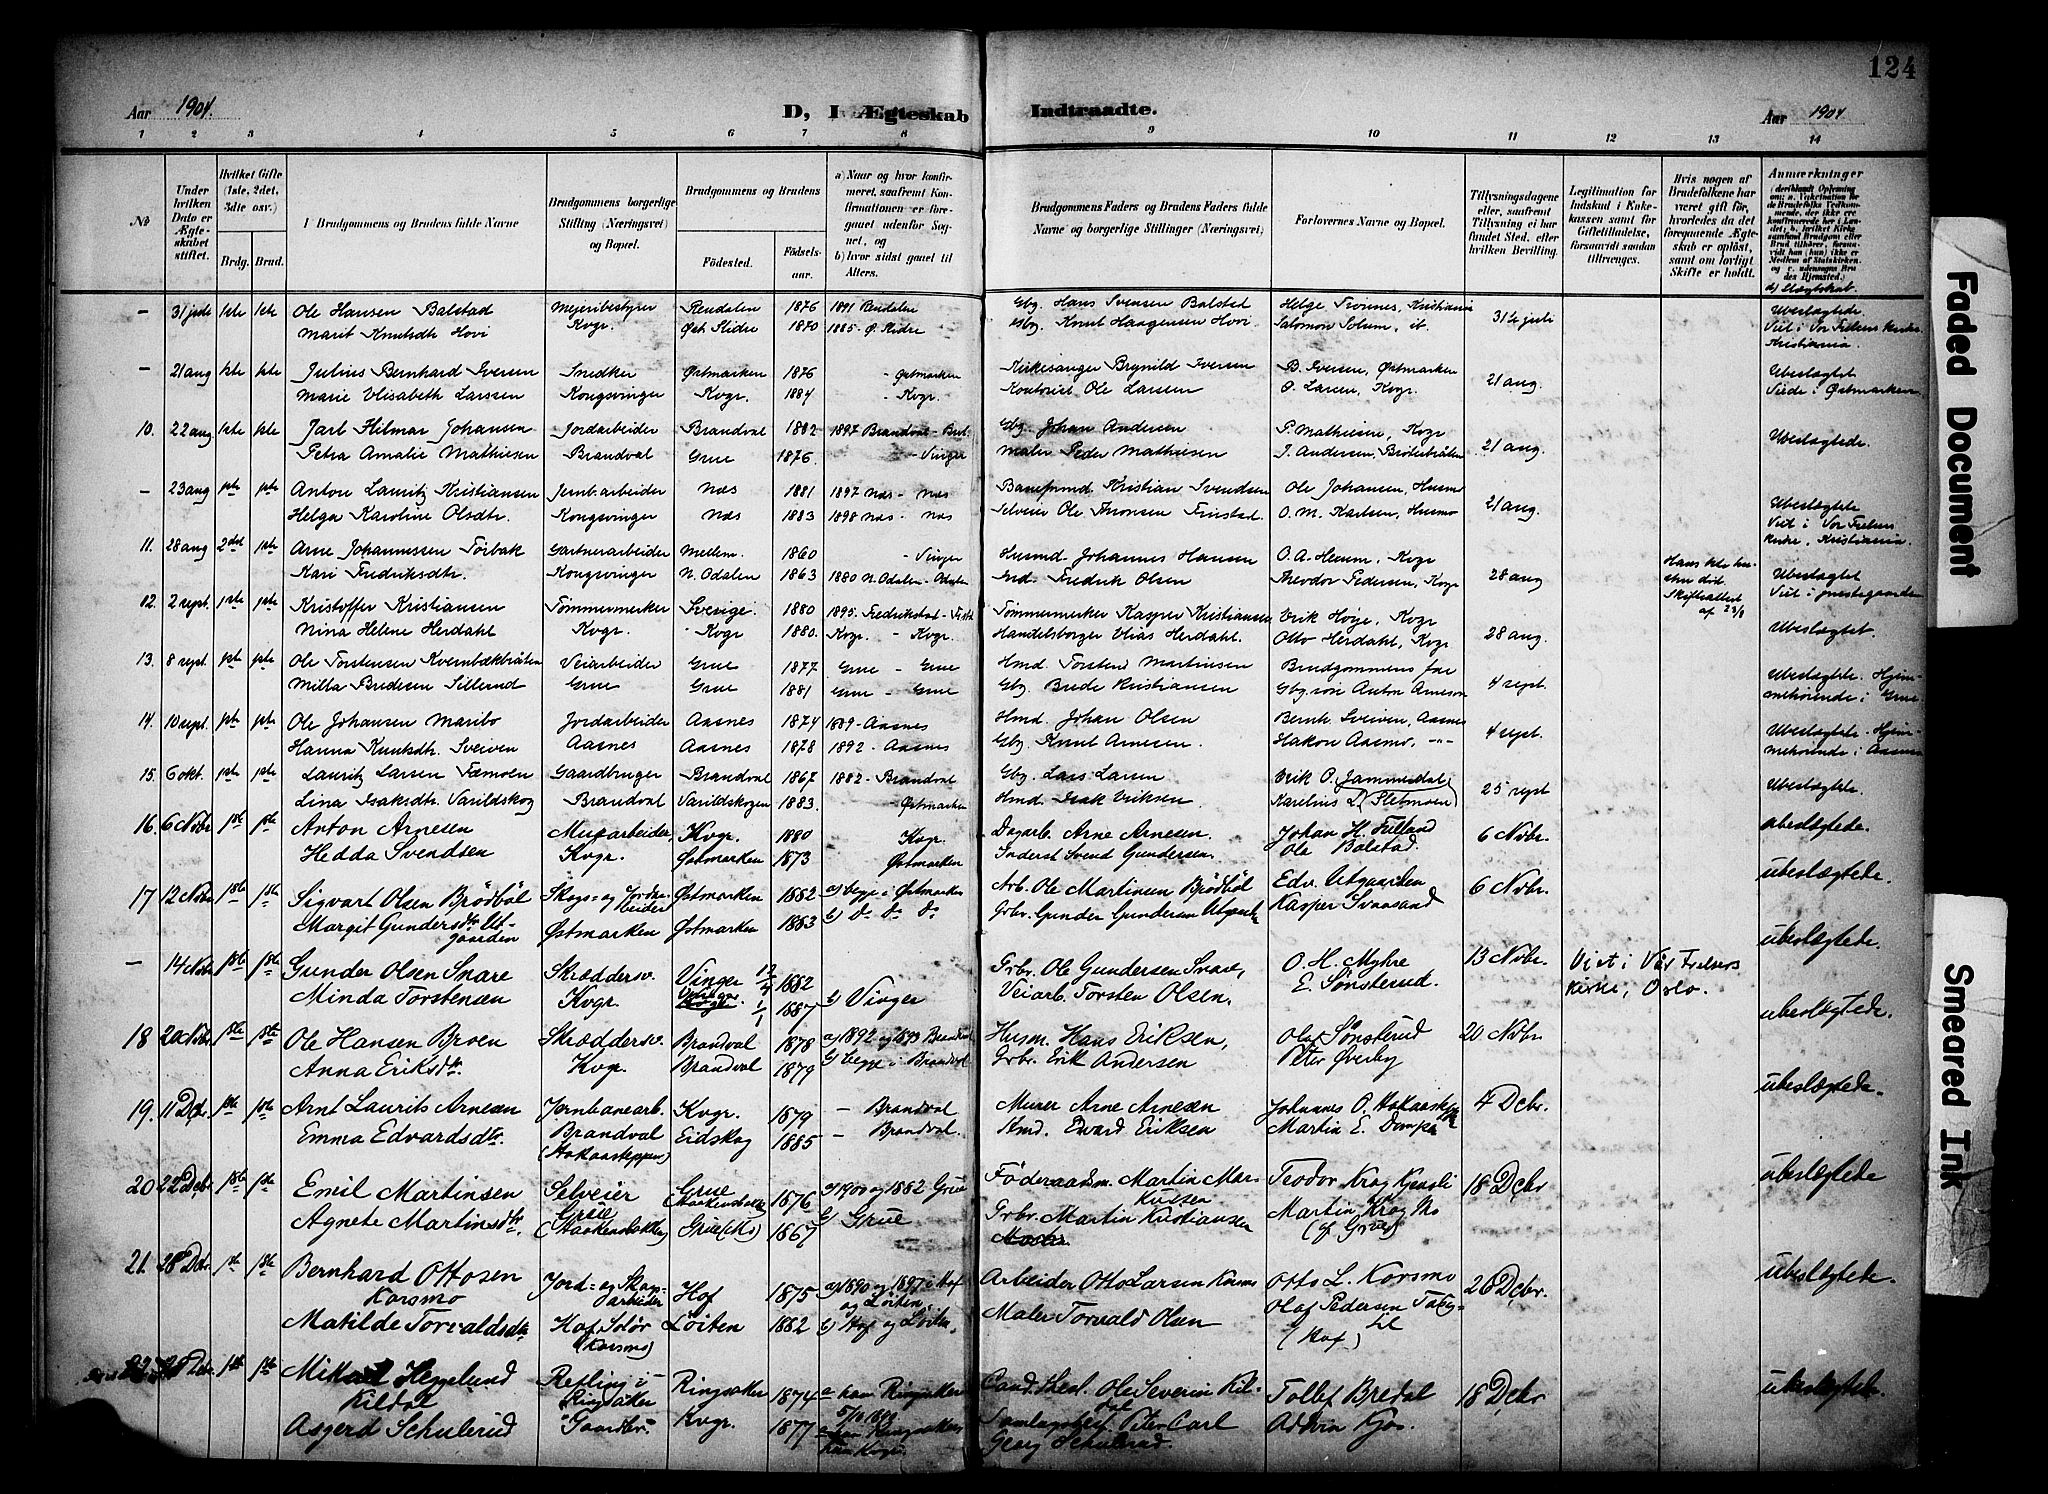 124
Aar 1904. D, I Ægteskab Indtraadte. Aar 1904
1 2 3 4 5 6 7 8 9 10 11 12 13 14
No
Under hvilken Dato er Ægteskabet stiftet.
Hvilket Gifte (1ste, 2det, 3die osv.)
Brdg. Brud.
I Brudgommens og Brudens fulde Navne
Brudgommens borgerlige Stilling (Næringsvei) og Bopæl.
Brudgommens og Brudens
Födested. Födsels-aar.
a) Naar og hvor konfirmeret, saafremt Konfirmationen er foregaaet udenfor Sognet, og
b) hvor sidst gaaet til Alters.
Brudgommens Faders og Brudens Faders fulde Navne og borgerlige Stillinger (Næringsvei)
Forlovernes Navne og Bopæl.
Tillysningsdagene eller, saafremt Tillysning ei har fundet Sted, efter hvilken Bevilling.
Legitimation for Indskud i Enkekassen samt for Giftetilladelse, forsaavidt saadan tiltrænges.
Hvis nogen af Brudefolkene har været gift før, hvorledes da det foregaaende Ægteskab er opløst, samt om lovligt Skifte er holdt.
Anmærkninger
— 31 juli 1ste 1ste Ole Hansen Balstad Meieribestyrer Rendalen 1876 1891 Rendalen Gbg. Hans Svensen Balstad Helge Trønnes, Kristiania 31te juli Ubeslægtede.
Marit Knutsdtr Hovi Kvgr. Øst. Slidre 1870 1885 - Ø. Slidre Gbg. Knut Haagensen Hovi Salomon Solum, it. Viet i Vor Frelsers Kirke. Kristiania.
— 21 aug 1ste 1ste Julius Bernhard Iversen Snedker Østmarken 1876 - Østmarken Kirkesanger Brynild Iversen B. Iversen, Østmarken 21 aug. Ubeslægtet
Marie Elisabeth Larssen Kongsvinger Kvgr. 1884 - Kvgr. Ole Larsen O. Larsen, Kvgr. Viede i Østmarken
10. 22 aug 1ste 1ste Jarl Hilmar Johansen Jordarbeider Brandval 1882 1897 Brandval Gbg. Johan Andersen P. Mathiesen, Kvgr 21 aug. Ubeslægtede.
Petra Amalie Mathiesen Brandval Grue 1876. - Vinger Maler Peder Mathiesen J. Andersen,
— 23 aug 1ste 1ste Anton Lauritz Kristiansen Jernb.arbeider Næs 1881 1897 Næs - Næs Kristian Svendsen Ole Johansen, Husmo 21 aug. Ubeslægtete
Helga Karoline Olsdtr. Kongsvinger Næs 1883 1898 Næs - Næs Selveier Ole Thronsen Finstad. O. M. Karlsen, Husmo Viet i Vor Frelsers Kirke, Kristiania.
11. 28 aug 2det 1ste Arne Johannessen Torbak Gartnerarbeider Mellem. 1860 - Vinger Husmd. Johannes Hansen O. A. Heum, Kvgr 28 aug Hans 1ste hustru død. Skifteattest af 23/8 Ubeslægtet
Kari Fredriksdtr. Kongsvinger N. Odalen 1863 1880 N. Odalen - Odalen Gmd. Fredrik Olsen Theodor Pedersen, Kvgr Viet i prestegaarden
12. 2 sept. 1ste 1ste Kristoffer Kristiansen Tømmermerker Sverige 1880 1895. Fredrikstad Tømmermerker Kasper Kristiansen Erik Høye, Kvgr 28 aug. Ubeslægtet.
Nina Helene Herdahl Kvgr. Kvgr 1880. Kvgr. - Kvgr. Handelsborger Elias Herdahl. Otto Herdahl, Kvgr
13. 8 sept. 1ste 1ste Ole Torstensen Kvernbækbraaten Veiarbeider Grue 1877 Grue - Grue Hmd. Torsten Martinsen Brudgommens far 4 sept. Ubeslægtete. Hjemmehørende i Grue
Milla Bredesen Sillerud Grue Grue 1881 Grue - Grue Gbg. Brede Kristiansen Gbg.søn Anton Arnesen
14. 10 sept. 1ste 1ste Ole Johansen Maribo Jordarbeider Aasnes 1874 1889 - Aasnes Hmd. Johan Olsen Bernh. Sveiven, Aasnes 4 sept. Ubeslægtete. Hjemmehørende i Aasnes
Hanna Knutsdtr. Sveiven Aasnes Aasnes 1878 1892 - Aasnes Gbg. Knut Arnesen. Hakon Aasmo, -"-
15. 6 okt. 1ste 1ste Lauritz Larsen Tæmoen Gaardbruger Brandval 1867 1882 - Brandval Gbg. Lars Larsen Erik O. Jammerdal 25 sept Ubeslægtete.
Lina Isaksdtr. Varildskog Brandval Varildskogen 1883. - Østmarken Hmd. Isak Eriksen. Karelius D. Sletmoen
16. 6 Novbr. 1ste 1ste Anton Arnesen Murarbeider, Kvgr. 1880 Kvgr. Dagarb. Arne Arnesen. Johan H. Fjelland 6 Novbr. ubeslægtede.
Hedda Svendsen Kvgr. Østmarken 1873 Østmarken Inderst Svend Gundersen. Ole Balstad.
17 12 Novbr. 1ste 1ste Sigvart Olsen Brødbøl Skogs- og Jordarbeider Østmarken 1882 a) begge i Østmarken Arb. Ole Martinsen Brødbøl Edv. Utgaarden 6 Novbr. ubeslægtede.
Margit Gundersdtr. Utgaarden Østmarken Østmarken 1883 b) do do do Grbr. Gunder Gundersen Kasper Svaasand
— 14 Novbr. 1ste 1ste Gunder Olsen Snare Skræddersv. Vinger 12/4 1882 Grbr. Ole Gundersen Snare, O. H. Myhre 13 Novbr. Viet i Vår Frelsers kirke, Oslo. ubeslægtede.
Minda Torstensen Kvgr. 1/1 1887 b) Vinger Veiarb. Torsten Olsen. E. Sønsterud.
18 20 Novbr. 1ste 1ste Ole Hansen Broen Skræddersv. Brandval 1878 a) 1892 og 1893 Brandval Husm. Hans Eriksen, Olaf Sønsterud 20 Novbr. ubeslægtede.
Anna Eriksdtr. Kvgr. Brandval 1879 b) begge i Brandval Grbr. Erik Andersen Peter Øverby
19. 11 Dcbr. 1ste 1ste Arnt Laurits Arnesen Jernbanearb. Kvgr. 1879 - Brandval Murer Arne Arnesen Johannes O. 4 Dcbr. ubeslægtede.
Emma Edvardsdtr. Brandval Eidskog 1885 - Brandval. Hmd. Edvard Eriksen Martin E.
20 22 Dcbr. 1ste 1ste Emil Martinsen Selveier Grue 1876 a) 1900 og 1882 Grue Föderaadsm. Martin Markussen Teodor Krog 18 Dcbr ubeslægtede
Agnete Martinsdtr. Grue Grue 1867 b) Grue Grbr. Martin Kristiansen Martin Krog Mo (af Grue)
21. 28 Dcbr. 1ste 1ste Bernhard Ottosen Korsmo Jord- og Skogarbeider Hof 1875 a) 1890 og 1897 i Hof og Löiten. Arbeider Otto Larsen Korsmo Otto L. Korsmo 26 Dcbr. ubeslægtede.
Matilde Torvaldsdtr. Hof Solör (Korsmo) Löiten 1882 b) Hof og Löiten. Maler Torvald Olsen Olaf Pedersen (Hof)
22. Dcbr. 1ste 1ste Mikael Hegelund Kildal Refling i Ringsaker Gaardbr. Ringsaker 1874 a han Ringsaker Cand. theol. Ole Severin Kildal Tollef Bredal 18 Dcbr ubeslægtede.
Asgerd Schulerud Kvgr. 1877 Peter Carl Georg Schulerud. Advin Kjos.
Faded Document
Smeared Ink